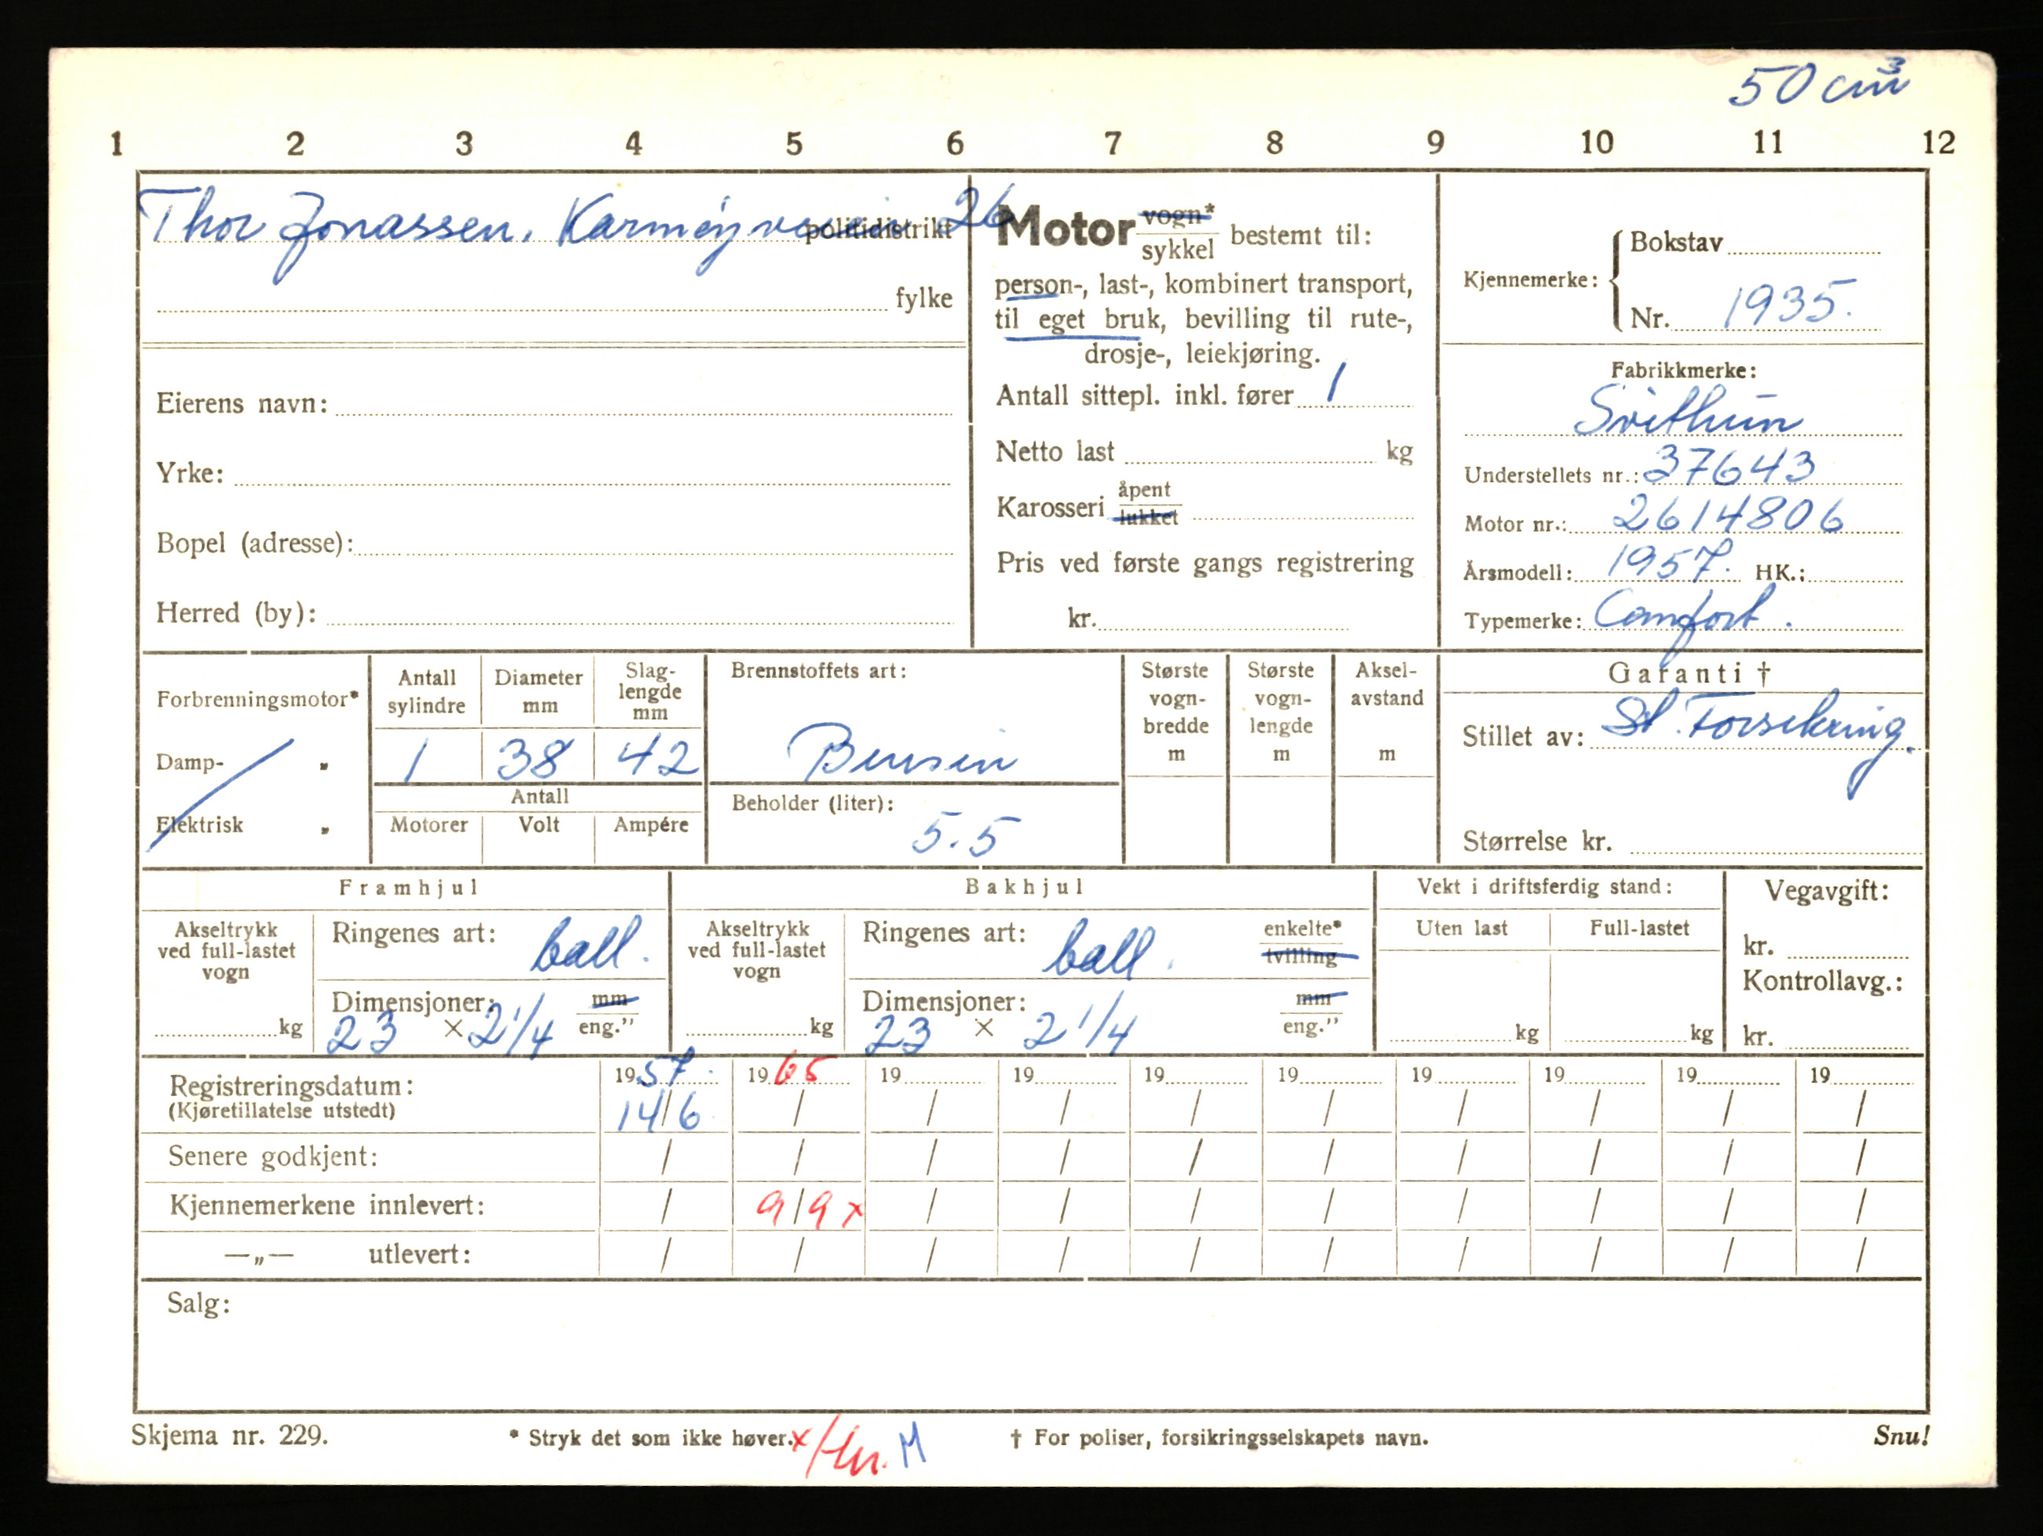 50 cm³
1 2 3 4 5 6 7 8 9 10 11 12
Thor Jonassen, Karmøyveien 26
politidistrikt
fylke
Eierens navn:
Yrke:
Bopel (adresse):
Herred (by):
Motor vogn* sykkel bestemt til:
person-, last-, kombinert transport,
til eget bruk, bevilling til rute-,
drosje-, leiekjøring.
Antall sittepl. inkl. fører 1
Netto last kg
Karosseri åpent lukket
Pris ved første gangs registrering
kr.
Kjennemerke: Bokstav
Nr. 1935.
Fabrikkmerke:
Svithun
Understellets nr.: 37643
Motor nr.: 2614806
Årsmodell: 1957. HK.:
Typemerke: Comfort.
Forbrenningsmotor*
Damp- "
Elektrisk "
Antall sylindre
Diameter mm
Slag-lengde mm
1 38 42
Antall
Motorer Volt Ampére
Brennstoffets art:
Bensin
Beholder (liter):
5.5
Største vogn-bredde m
Største vogn-lengde m
Aksel-avstand m
Garanti †
Stillet av: St. Forsikring.
Størrelse kr.
Framhjul
Akseltrykk ved full-lastet vogn
kg
Ringenes art: ball.
Dimensjoner: mm eng."
23 × 2 1/4
Bakhjul
Akseltrykk ved full-lastet vogn
kg
Ringenes art: ball. enkelte* tvilling
Dimensjoner: mm eng."
23 × 2 1/4
Vekt i driftsferdig stand:
Uten last Full-lastet
kg kg
Vegavgift:
kr.
Kontrollavg.:
kr.
Registreringsdatum: 1957. 1965 19 19 19 19 19 19 19 19
(Kjøretillatelse utstedt) 14/6 / / / / / / / / /
Senere godkjent: / / / / / / / / / /
Kjennemerkene innlevert: / 9/9 x / / / / / / / /
—„— utlevert: / / / / / / / / / /
Salg:
Skjema nr. 229. * Stryk det som ikke høver. x M † For poliser, forsikringsselskapets navn. Snu!